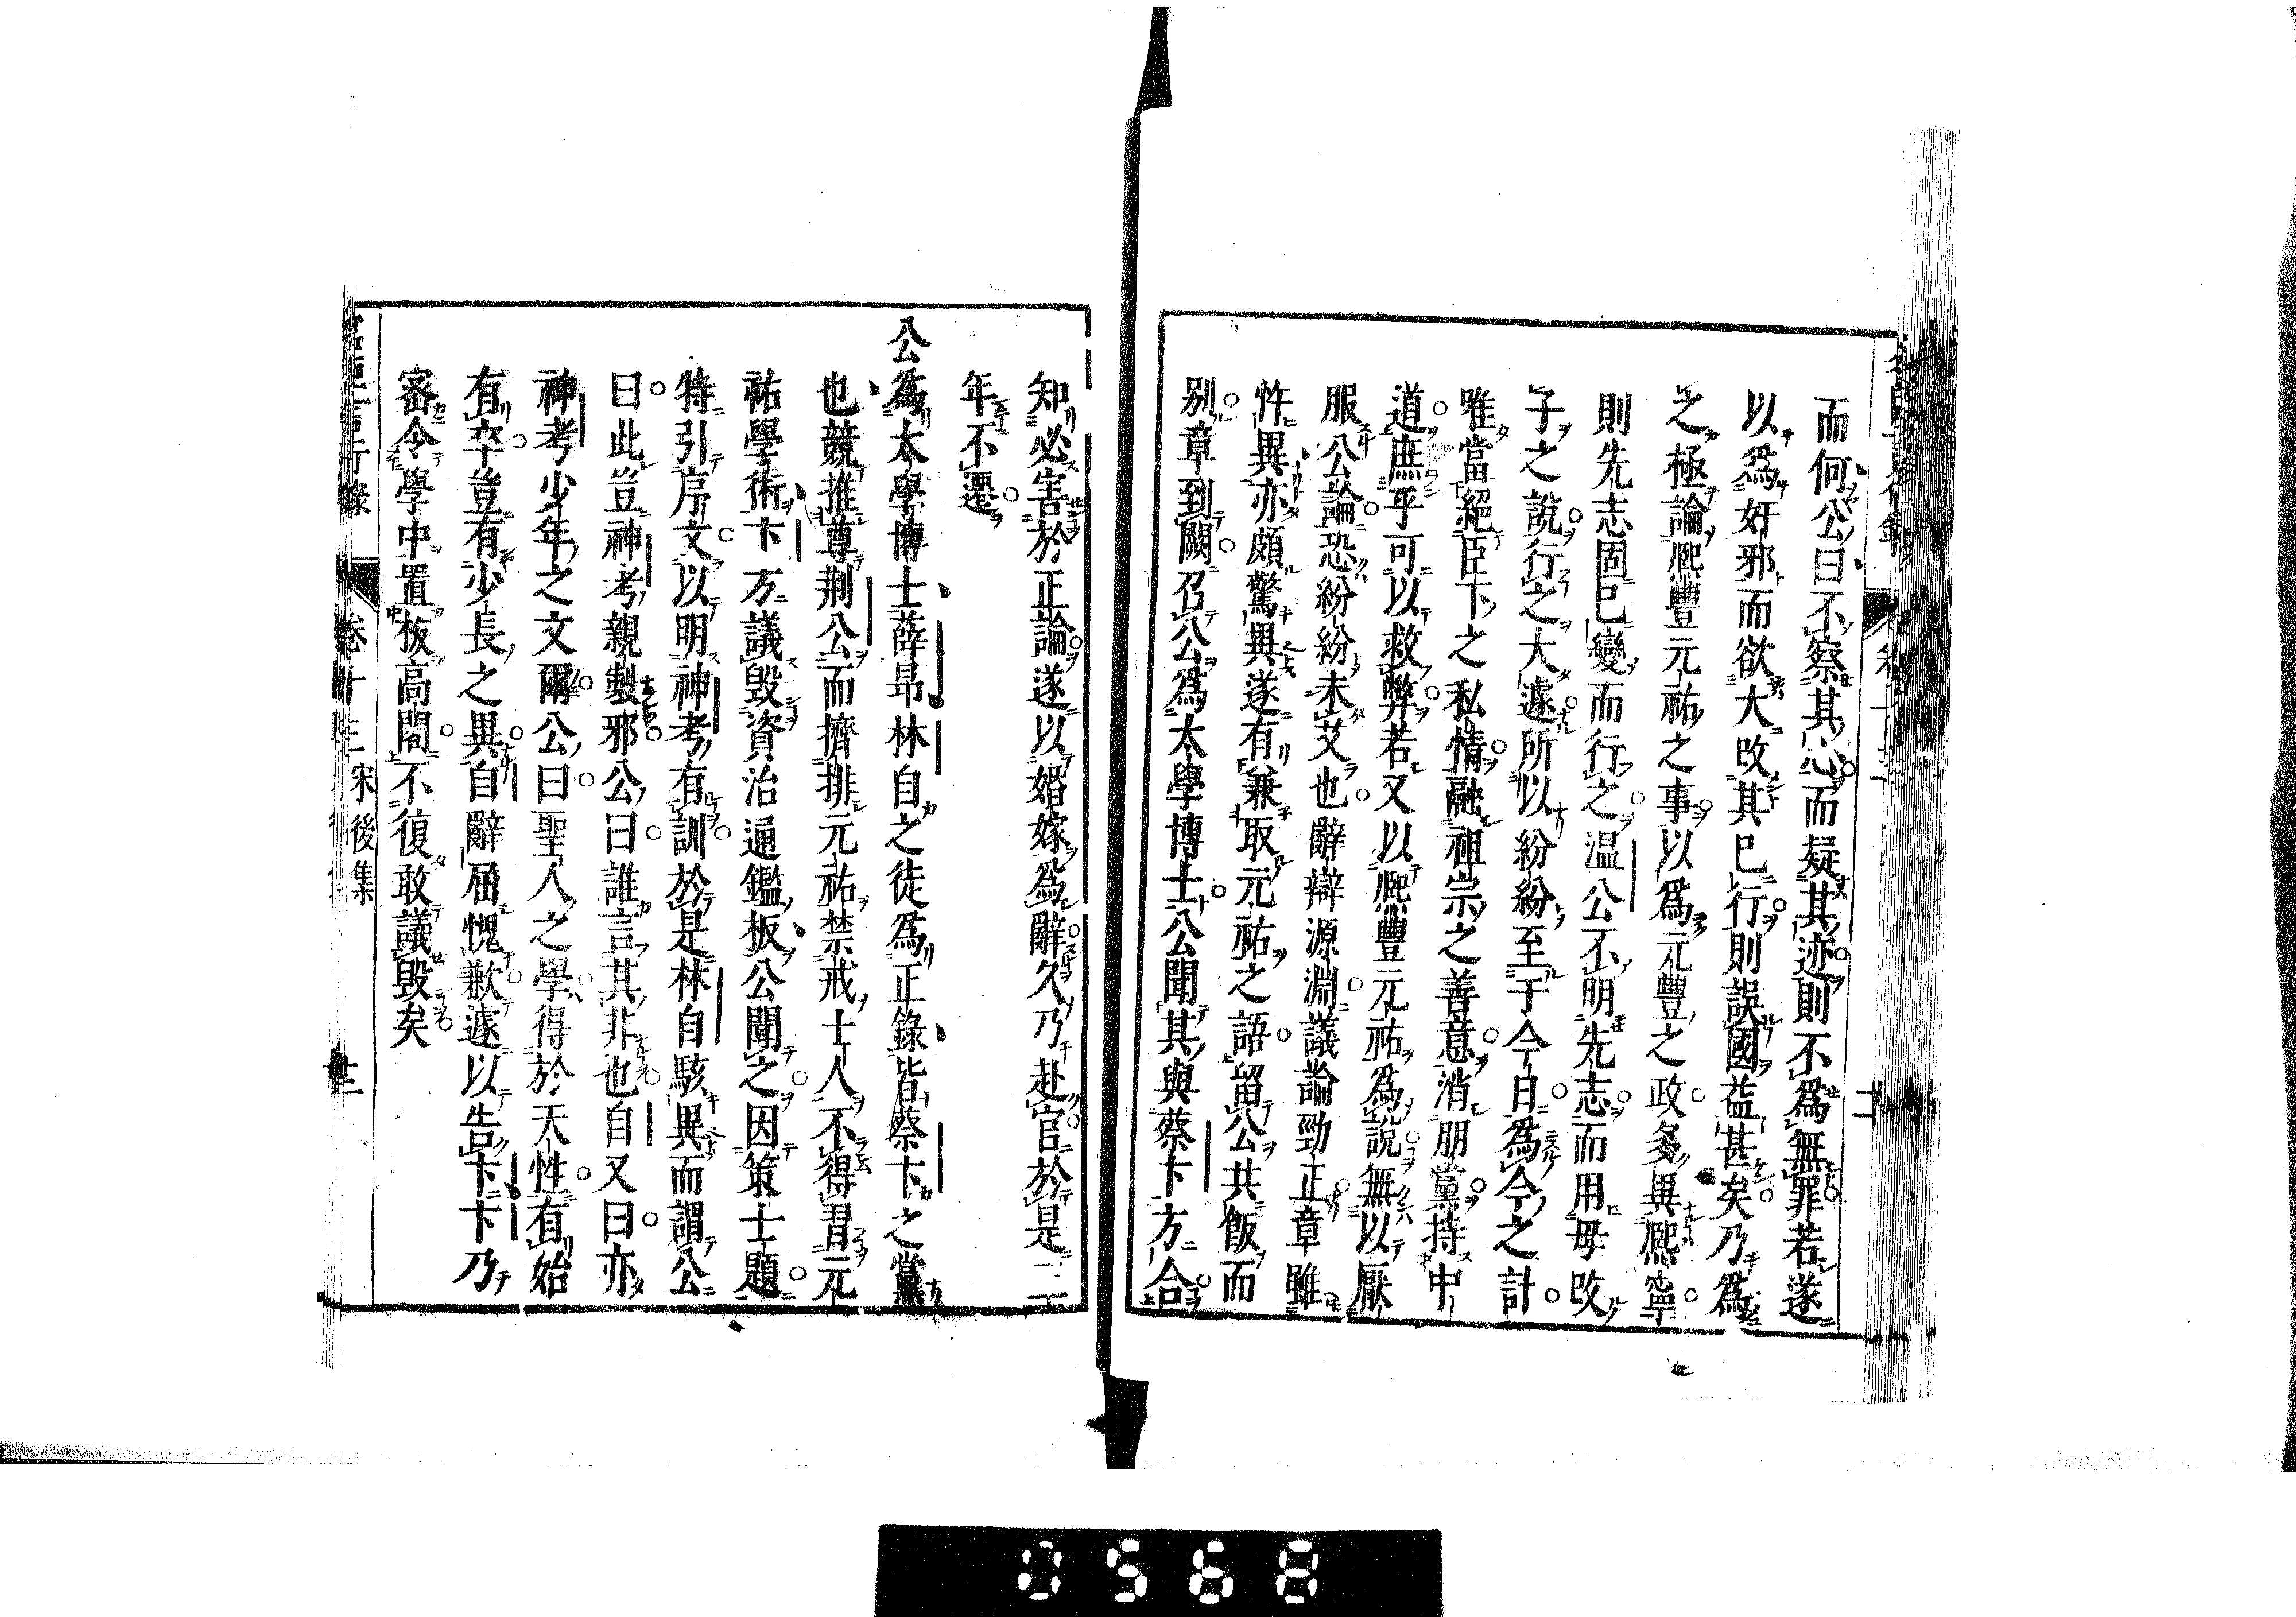 而何公曰不察其心而疑其迹則不為無罪若遂
以為奸邪而欲大改其已行則誤國益甚矣乃為
之極論熈豐元祐之事以為元豐之政多異熈寧
則先志固已變而行之温公不明先志而用母改
子之說行之大遽所以紛紛至于今日為今之計
唯當絕臣下之私情融祖宗之善意消朋黨持中
道庶乎可以救弊若又以熈豐元祐為說無以厭
服公論恐紛紛未艾也辭辯源淵議論勁正章雖
忤異亦頗驚異遂有兼取元祐之語留公共飯而
別章到闕召公為太學博士公聞其與蔡卞方合
知必害於正論遂以婚嫁為辭久乃赴官於是二
年不遷
公為太學博士薛昂林自之徒為正錄皆蔡卞之黨
也競推尊荆公而擠排元祐禁戒士人不得習元
祐學術卞方議毀資治通鑑板公聞之因策士題
特引序文以明神考有訓於是林自駭異而謂公
曰此豈神考親製邪公曰誰言其非也自又曰亦
神考少年之文爾公曰聖人之學得於天性有始
有卒豈有少長之異自辭屈愧歉遽以告卞卞乃
密令學中置板高閣不復敢議毀矣
名臣言行錄 卷十三 宋後集 十二
0568